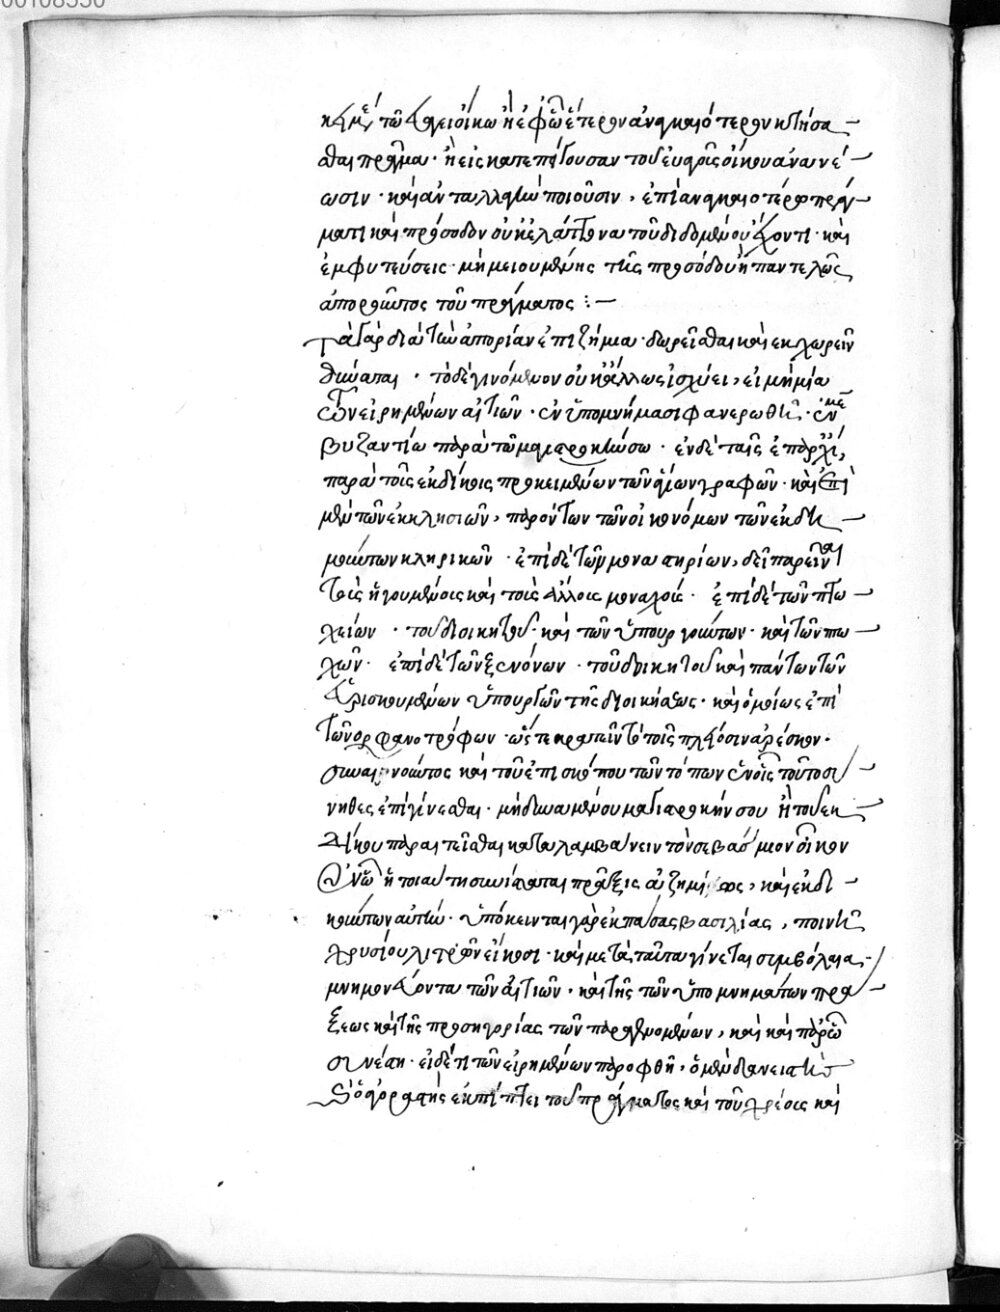 00108350
καὶ μὲν τῶ εὐαγεῖ οἴκω ἢ ἐφ' ὧ ἕτερον ἀναγκαιότερον κτήσα
σθαι πρᾶγμα · ἢ εἰς καταπεσοῦσαν τοῦ εὐαγοῦς οἴκου ἀνανέ
ωσιν · καὶ ἀνταλλαγὴν ποιοῦσιν, ἐπὶ ἀναγκαιοτέρω πράγ
ματι καὶ πρόσοδον οὐκ ἐλάττονα τοῦ διδομένου ἔχοντι · καὶ
ἐμφυτεύσεις · μὴ μειουμένης τῆς προσόδου ἢ παντελῶς
ἀπορῶντος τοῦ πράγματος :—
τὰ γὰρ διὰ τὴν ἀπορίαν ἐπιζήμια · δωρεῖσθαι καὶ ἐκχωρεῖν
δύναται · τὸ δὲ γινόμενον οὐκ ἄλλως ἰσχύει, εἰ μὴ μία
τῶν εἰρημένων αἰτιῶν · ἐν ὑπομνήμασι φανερωθῆ · ἐν μὲν
βυζαντίω παρὰ τῶ μαγίστρω κήνσω · ἐν δὲ ταῖς ἐπαρχί,
παρὰ τοῖς ἐκδίκοις προκειμένων τῶν ἁγίων γραφῶν · καὶ ἐπὶ
μὲν τῶν ἐκκλησιῶν, παρόντων τῶν οἰκονόμων τῶν ἐνδη
μούντων κληρικῶν · ἐπὶ δὲ τῶν μοναστηρίων, δεῖ παρεῖναι
τοὺς ἡγουμένους καὶ τοὺς ἄλλους μοναχούς · ἐπὶ δὲ τῶν πτω
χείων · τοῦ διοικητοῦ · καὶ τῶν ὑπουργούντων · καὶ τῶν πτω
χῶν · ἐπὶ δὲ τῶν ξενώνων · τοῦ διοικητοῦ καὶ πάντων τῶν
εὑρισκομένων ὑπουργῶν τῆς διοικήσεως · καὶ ὁμοίως ἐπὶ
τῶν ὀρφανοτρόφων · ὥστε κρατεῖν τὸ τοῖς πλείοσιν ἀρέσκον ·
συναινοῦντος καὶ τοῦ ἐπισκόπου τῶν τόπων ἐν οἷς τοῦτο σύ
νηθες ἐπιγίνεσθαι · μὴ δυναμένου
δίκου παραιτεῖσθαι καταλαμβάνειν τὸν σεβάσμιον οἶκον
ἐν ὧ ἡ τοιαύτη συνίσταται πρᾶξις ἀζημίως, καὶ ἐκδι
κούντων αὐτὴν · ὑπόκεινται γὰρ
χρυσίου λιτρῶν εἴκοσι · καὶ μετὰ ταῦτα γίνεται συμβόλαια ·
μνημονεύοντα τῶν αἰτιῶν, καὶ τῆς τῶν ὑπομνημάτων πρά
ξεως καὶ τῆς προσηγορίας τῶν παραγενομένων, καὶ
συνέστη · εἰ δέ τι τῶν εἰρημένων παροφθῆ, ὁ μὲν δανειστὴς
ὁ ἀγοραστὴς ἐκπίπτει τοῦ πράγματος καὶ τοῦ χρέους καὶ